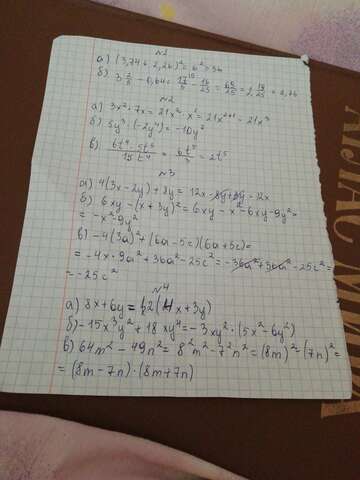 №1
а) (3,74 + 2,26)² = 6² = 36
б) 3 2/5 - 0,64 = 17/5 - 16/25 = 69/25 = 2 19/25 = 2,76
№2
а) 3x² · 7x = 21x² · x¹ = 21x²⁺¹ = 21x³
б) 5y³ · (-2y⁴) = -10y⁷
в)
№3
а) 4(3x - 2y) + 8y = 12x - 8y + 8y = 12x
б) 6xy - (x + 3y)² = 6xy - x² - 6xy - 9y² =
= -x² - 9y²
в) -4(3a)² + (6a - 5c)(6a + 5c) =
= -4 × 9a² + 36a² - 25c² = -36a² + 36a² - 25c² =
= -25c²
№4
а) 8x + 6y = 2(4x + 3y)
б) -15x³y² + 18xy⁴ = -3xy² · (5x² - 6y²)
в) 64m² - 49n² = 8²m² - 7²n² = (8m)² - (7n)² =
= (8m - 7n) · (8m + 7n)